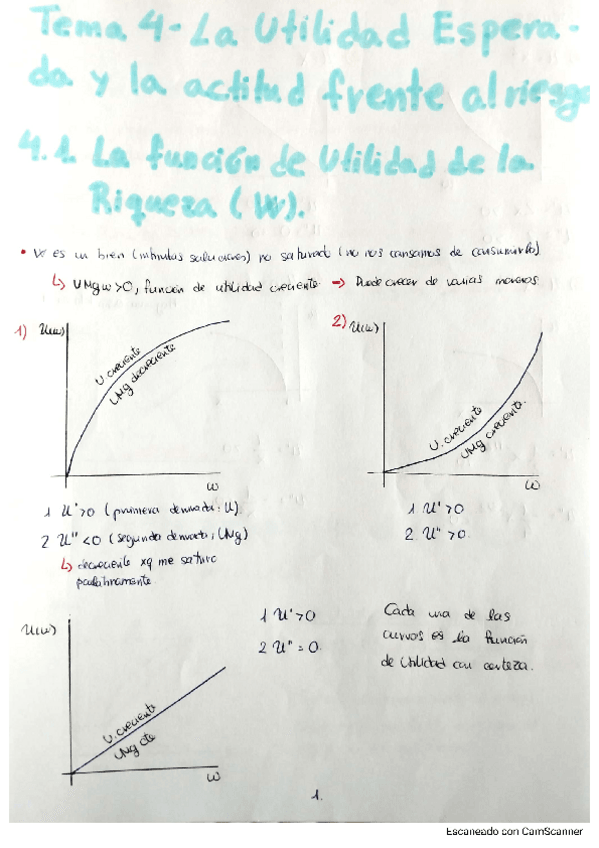 Tema 4 - La Utilidad Espera-
da y la actitud frente al riesgo
4.1. La función de Utilidad de la
Riqueza (W).
• W es un bien ( saluciones) no saturado (no nos cansamos de consumirlo)
↳ UMgw >0, función de utilidad creciente. → Puede crecer de varias maneras
1) U(w)
U. creciente
UMg decreciente
w
1 U' >0 (primera derivada: U).
2 U'' <0 (segunda derivada: UMg)
↳ decreciente xq me saturo
paulatinamente.
2) U(w)
U. creciente
UMg creciente.
w
1. U' >0
2. U'' >0.
U(w)
U. creciente
UMg cte
w
1 U' >0
2 U'' = 0.
Cada una de las
curvas es la función
de utilidad con certeza.
1.
Escaneado con CamScanner